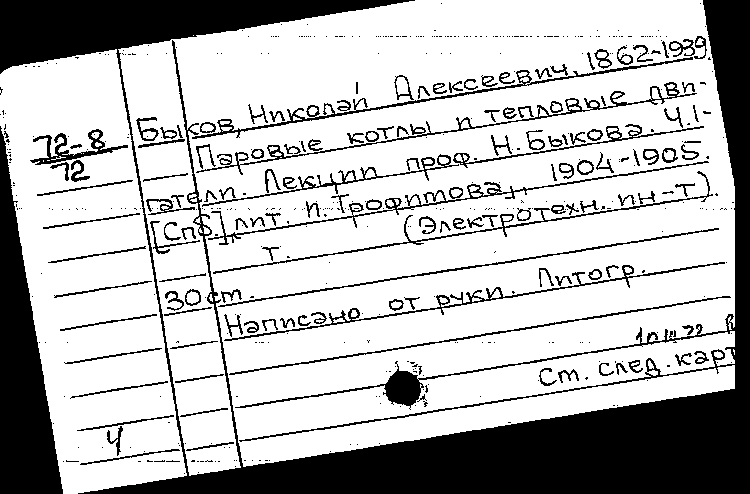 Быков, Николай Алексеевич. 1862-1939
72-8
72
Паровые котлы и тепловые дви-
гатели. Лекции проф. Н. Быкова. Ч.1-
[Спб.], лит. И. Трофимова, 1904-1905.
т. (Электротехн. ин-т).
30 см.
Написано от руки. Литогр.
См. след. карт
4